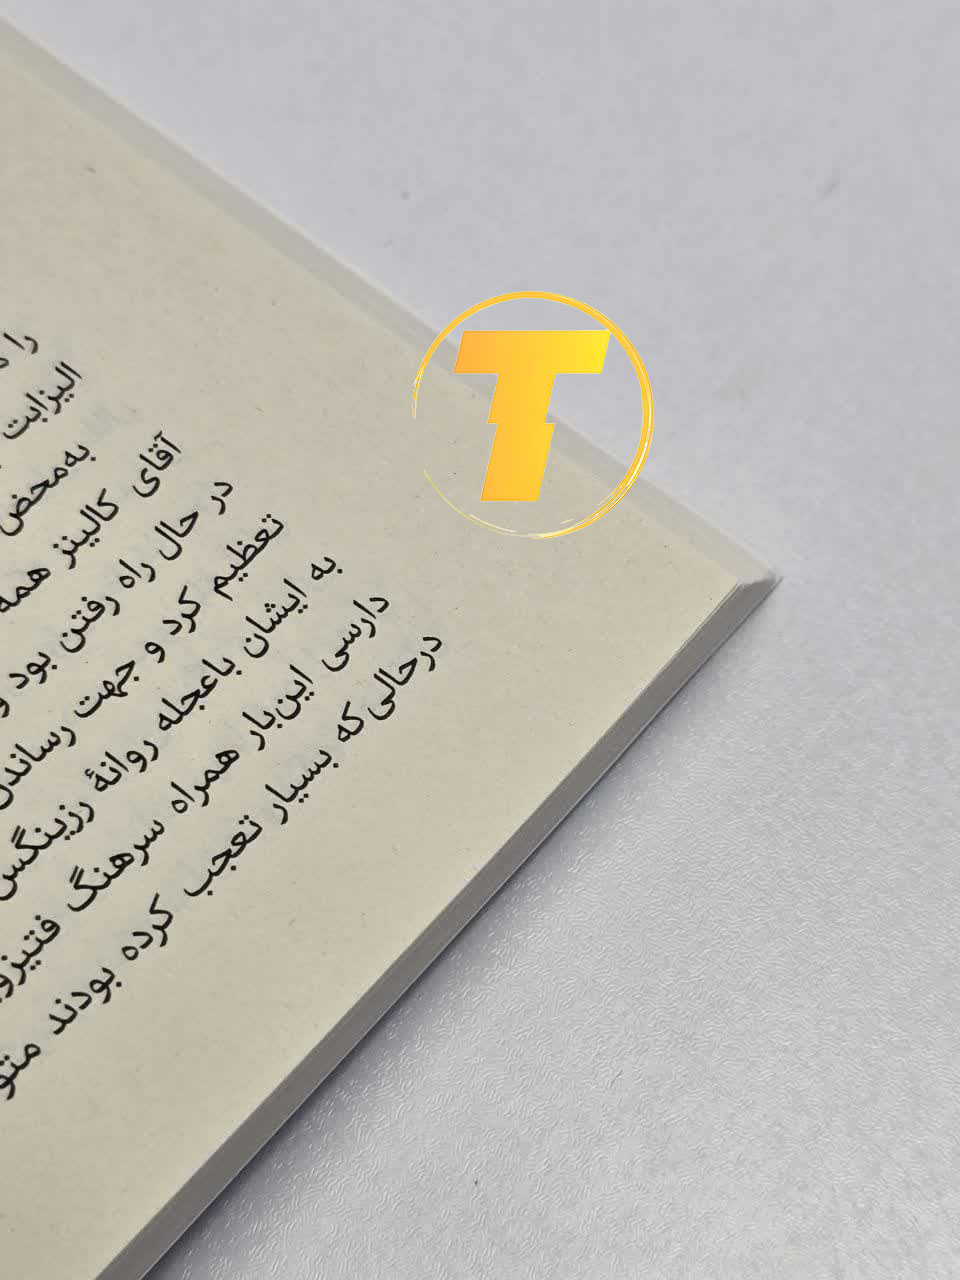 T
را
الیزابت
به‌محض
آقای کالینز همه
در حال راه رفتن بود و
تعظیم کرد و جهت رساندن
به ایشان باعجله روانهٔ رزینگس
دارسی این‌بار همراه سرهنگ
درحالی‌که بسیار تعجب کرده بودند